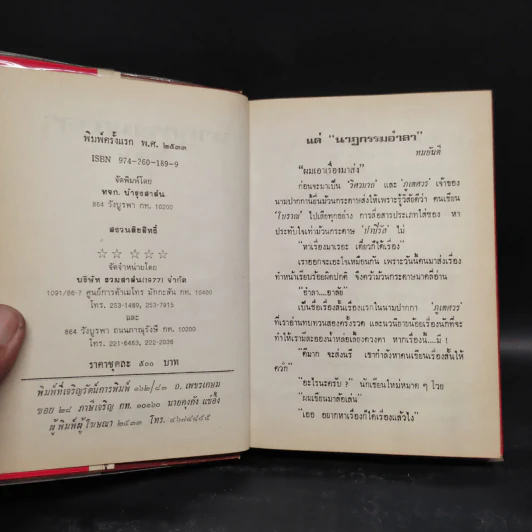 พิมพ์ครั้งแรก พ.ศ. ๒๕๓๓
ISBN 974-260-189-9
จัดพิมพ์โดย
หจก. บำรุงสาส์น
864 วังบูรพา กท. 10200
สงวนลิขสิทธิ์
☆☆ ☆☆☆
จัดจำหน่ายโดย
บริษัท รวมสาส์น(1977) จำกัด
1091/86-7 ศูนย์การค้าเมโทร มักกะสัน กท. 10400
โทร. 253-1489, 253-7915
และ
864 วังบูรพา ถนนภาณุรังษี กท. 10200
โทร. 221-6483, 222-2036
ราคาชุดละ ๕๐๐ บาท
พิมพ์ที่เจริญรัตน์การพิมพ์ ๑๖๒/๔๓ ถ. เพชรเกษม
ซอย ๒๘ ภาษีเจริญ กท. ๑๐๑๖๐ นายคุงกัง แซ่อึ้ง
ผู้พิมพ์ผู้โฆษณา ๒๕๓๓ โทร. ๔๖๗๔๕๕๕
แด่ "นาฏกรรมอำลา"
ทมยันตี
"ผมเอาเรื่องมาส่ง"
ก่อนจะมาเป็น 'วิศวนาถ' และ 'ภูเตศวร' เจ้าของ
นามปากกานี้ยื่นม้วนกระดาษส่งให้เพราะรู้วิสัยดีว่า คนเขียน
'โบราณ' ไปเสียทุกอย่าง การสื่อสารประเภทใส่ซอง หา
ประทับใจเท่าม้วนกระดาษ 'ปาปิรัส' ไม่
"หาเรื่องมาเรอะ เดี๋ยวก็ได้เรื่อง"
เราออกจะเอะใจเหมือนกัน เพราะวันนี้คนมาส่งเรื่อง
ทำหน้าเรียบร้อยผิดปกติ จึงคว้าม้วนกระดาษมาคลี่อ่าน
"อำลา...อาลัย"
เป็นชื่อเรื่องสั้นเรื่องแรกในนามปากกา 'ภูเตศวร'
ที่เราอ่านทบทวนสองครั้งรวด และนวนิยายน้อยเรื่องนักที่จะ
ทำให้เรามีละอองน้ำหล่อเลี้ยงดวงตา หากเรื่องนี้...มี !
"ดีมาก จะส่งนรี เขากำลังหาคนเขียนเรื่องสั้นให้
ควัก"
"อะไรนะครับ ?" นักเขียนใหม่หมาด ๆ โวย
"ผมเขียนมาล้อเล่น"
"เออ อยากหาเรื่องก็ได้เรื่องแล้วไง"